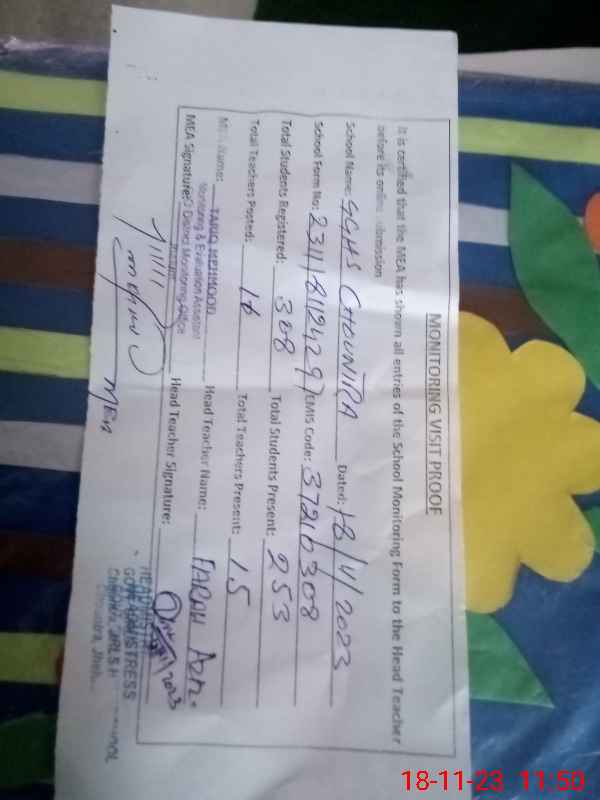 MONITORING VISIT PROOF
It is certified that the MEA has shown all entries of the School Monitoring Form to the Head Teacher
before its online submission
School Name: GGHS CHOUNTRA Dated: 18/11/2023
School Form No: EMIS Code: 37210308
Total Students Registered: 308 Total Students Present: 253
Total Teachers Posted: 16 Total Teachers Present: 15
MEA Name: TARIQ MEHMOOD Head Teacher Name: FARAH
Monitoring & Evaluation Assistant
MEA Signature: District Monitoring Office Head Teacher Signature:
MEA
HEADMISTRESS
18-11-23 11:50